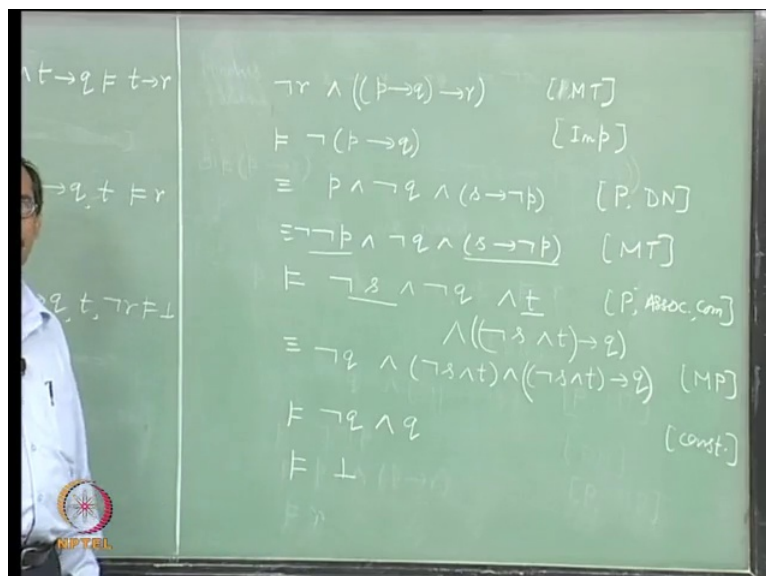 ∧ t→q ⊨ t→r
→q, t ⊨ r
→q, t, ¬r ⊨ ⊥
¬r ∧ ((p→q)→r) [MT]
⊨ ¬(p→q) [Imp]
≡ p ∧ ¬q ∧ (s→¬p) [P, DN]
≡ ¬¬p ∧ ¬q ∧ (s→¬p) [MT]
⊨ ¬s ∧ ¬q ∧ t [P, Assoc, Com]
∧ ((¬s ∧ t)→q)
≡ ¬q ∧ (¬s∧t) ∧ ((¬s∧t)→q) [MP]
⊨ ¬q ∧ q [Const.]
⊨ ⊥
NPTEL